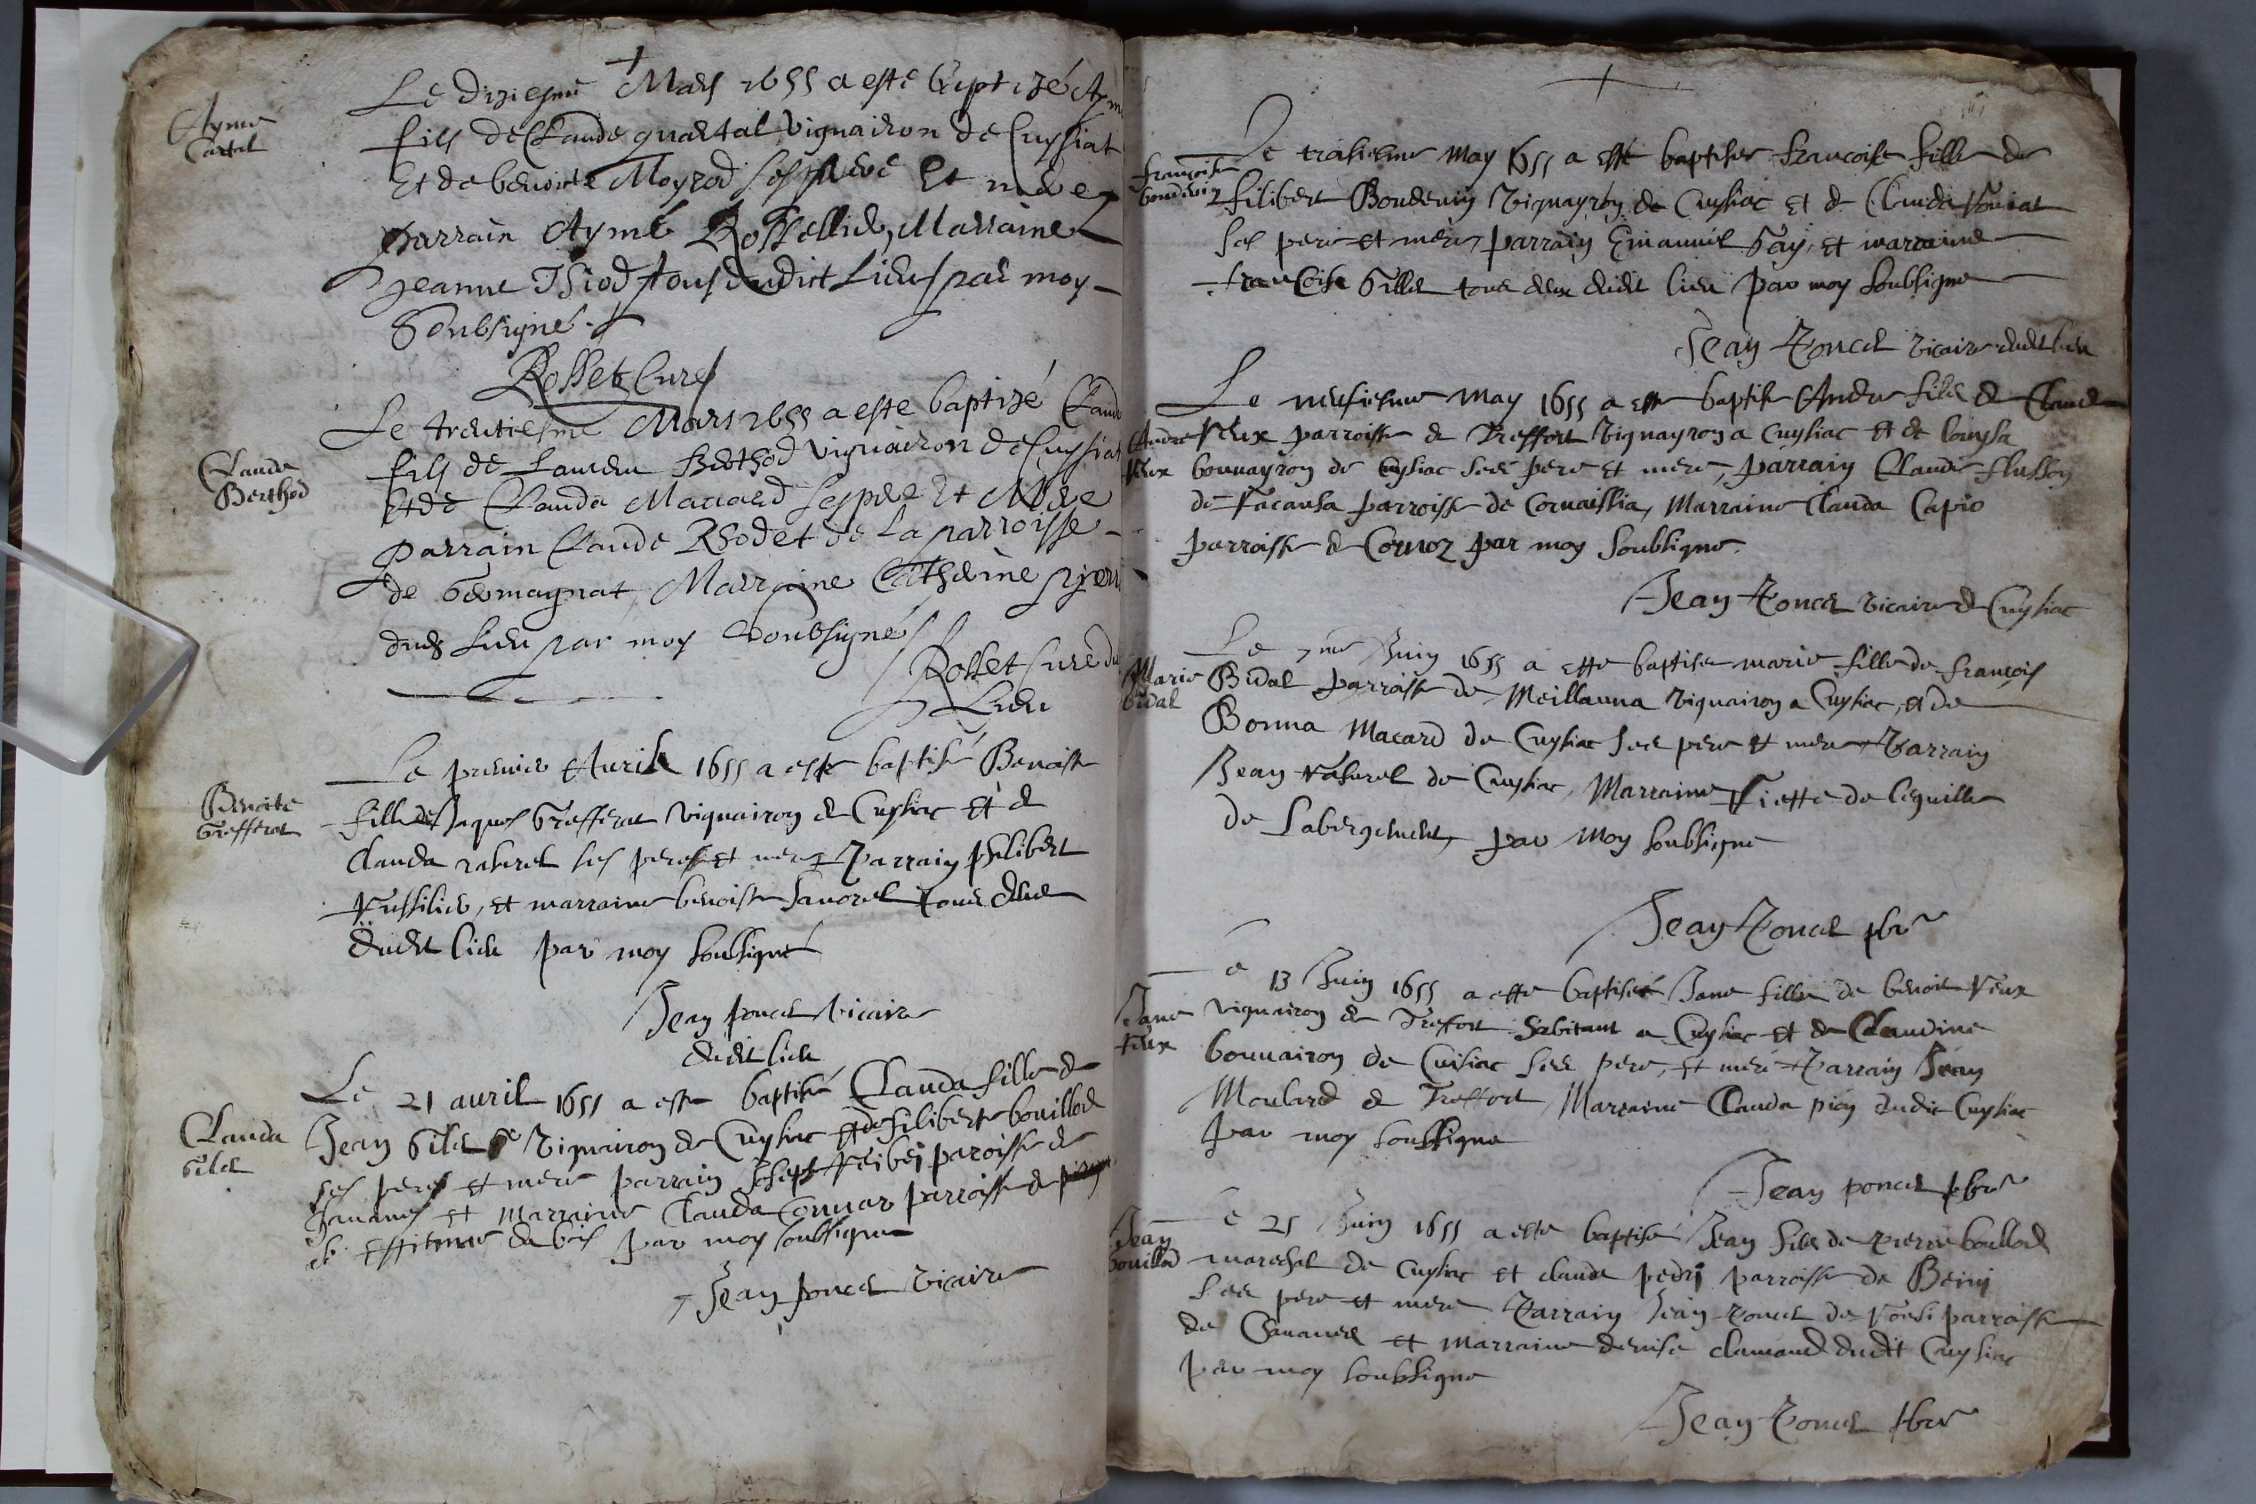 Ayme
Cartal
Le diziesme Mars 1655 a este baptizé Aym
fils de Claude quartal vignairon de Cuysiat
Et de benoite Moyrod ses pere et mere
parrain Aymé Rossellid, Marraine
Jeanne tous dudict Lieu par moy
Soubsigné
Rosset Curé
Claude
Berthod
Le trentiesme Mars 1655 a este baptizé Claude
fils de Laurent Berthod vignairon de Cuysiat
Et de Clauda Macard ses pere Et Mere
parrain Claude Rhodet de La parroisse
de Germagnat, Marraine Catherine
dud Lieu par moy Soubsigné
Rosset Curé du
Lieu
Benoite
Grefferat
Le premier Auril 1655 a este baptisé Benoiste
fille de Jaques Grefferat vignairon de Cuysiac Et de
Clauda naturel ses peres et mere Parrain philibert
et marraine benoiste tous deux
dudit lieu par moy soubsigné
Jean poncet vicaire
dudit lieu
Clauda
Gilet
Le 21 auril 1655 a este baptisé Clauda fille de
Jean Gilet vignairon de Cuysiac et de filiberte bouillod
ses peres et mere parrain Joseph paroisse de
et Marraine Clauda parroisse de
st estienne du bois par moy soubsigne
Jean poncet vicaire
françoise
boudevin
Le troisiesme may 1655 a esté baptisee francoise fille de
filibert Boudevin vignayron de Cuysiac et de Clauda
ses pere et mere, parrain Emanuel Gay, et marraine
francoise Gillet tous deux dudit lieu par moy soubsigne
Jean Poncet vicaire dudit lieu
Andre
Veux
Le neufiesme may 1655 a esté baptisé Andre fils de Claude
Veux parroisse de Treffort vignayron a Cuysiac et de louysa
bouuayron de Cuysiac ses pere et mere, parrain Claude
de parroisse de Marraine Clauda
parroisse de Cornoz par moy soubsigne.
Jean Poncet vicaire de Cuysiac
Marie
bidal
Le 7me Juin 1655 a esté baptisee marie fille de françois
Bidal parroisse de Meillauna vignairon a Cuysiac, et de
Bonna Macard de Cuysiac ses pere et mere Parrain
Jean naturel de Cuysiac, Marraine de
de Labergement, par Moy soubsigne
Jean Poncet pbre
Jane
Veux
Le 13 Juin 1655 a esté baptiseé Jane fille de benoit Veux
vignairon de Treffort habitant a Cuysiac et de Claudine
bouuairon de Cuisiac ses pere, et mere Parrain Jean
Moulard de Treffort, Marraine Clauda pion dudit Cuysiac
par moy soubsigne
Jean poncet pbre
Jean
bouillod
Le 25 Juin 1655 a este baptisé Jean fils de pierre boullod
mareschal de Cuysiac et clauda parroisse de
ses pere et mere Parrain Jean Poncet de parroisse
de et marraine denise dudit Cuysiac
par moy soubsigne
Jean Poncet pbre